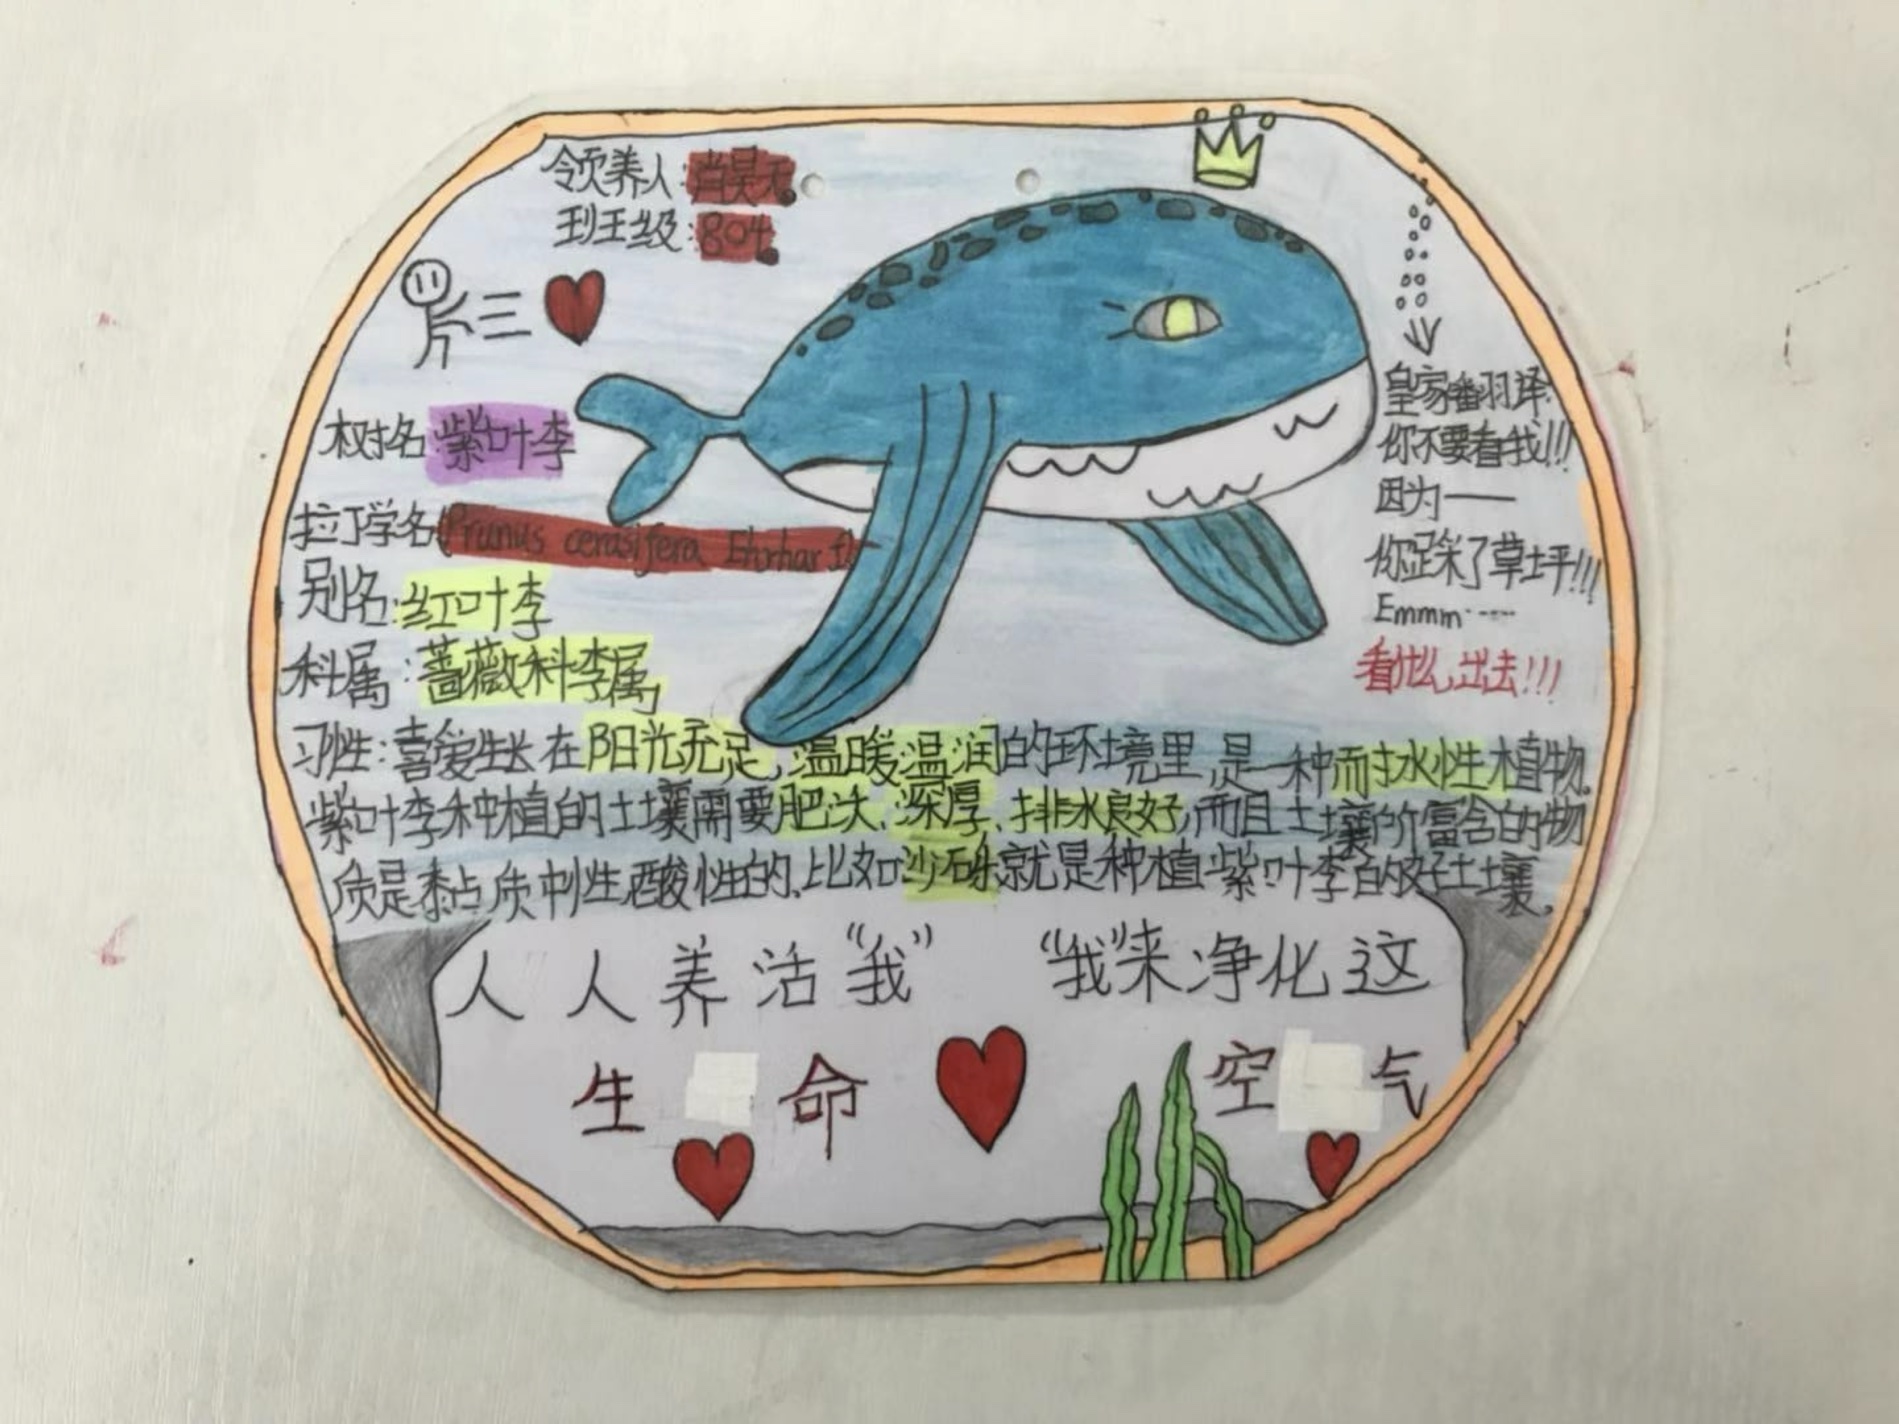 领养人:肖昊天。
班级:804。
树名:紫叶李
拉丁学名(Prunus cerasifera Ehrhar f)
别名:红叶李
科属:蔷薇科李属,
习性:喜爱生长在阳光充足,温暖温润的环境里,是一种耐水性植物.
紫叶李种植的土壤需要肥沃、深厚、排水良好,而且土壤所富含的物
质是黏质中性酸性的.比如沙砾就是种植紫叶李的好土壤.
皇家翻译:
你不要看我!!!
因为——
你踩了草坪!!!
Emmm……
看什么,出去!!!
人人养活“我”
生命
“我”来净化这
空气